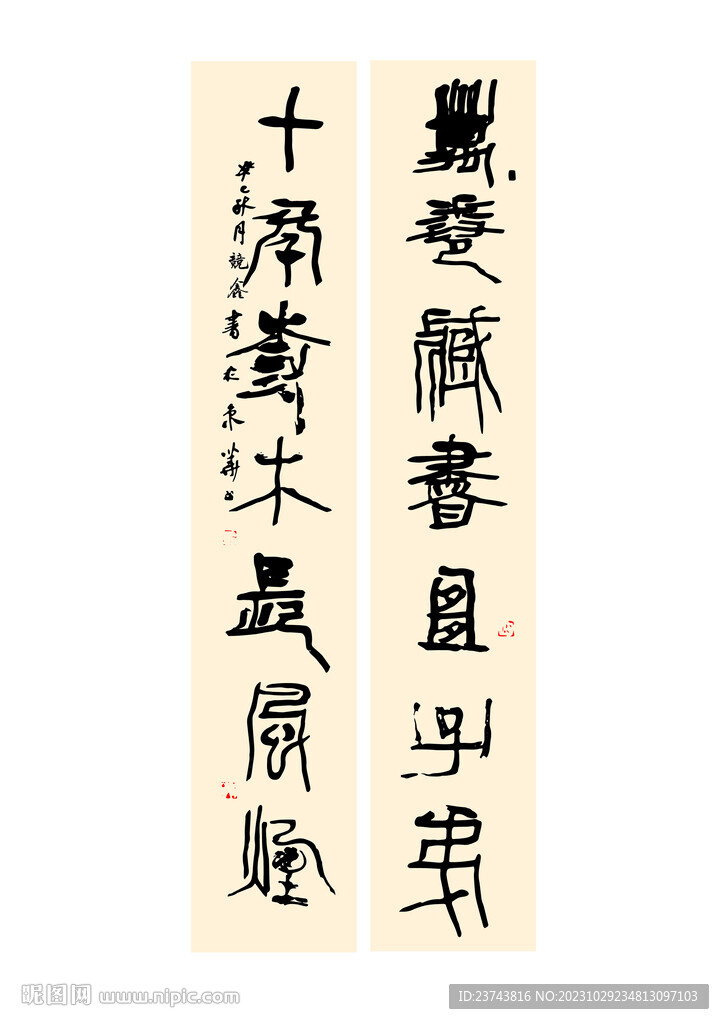 萬卷藏書宜子弟
十年樹木長風煙
癸巳秋月競鑫書於京華
昵图网 www.nipic.com
ID:23743816 NO:20231029234813097103